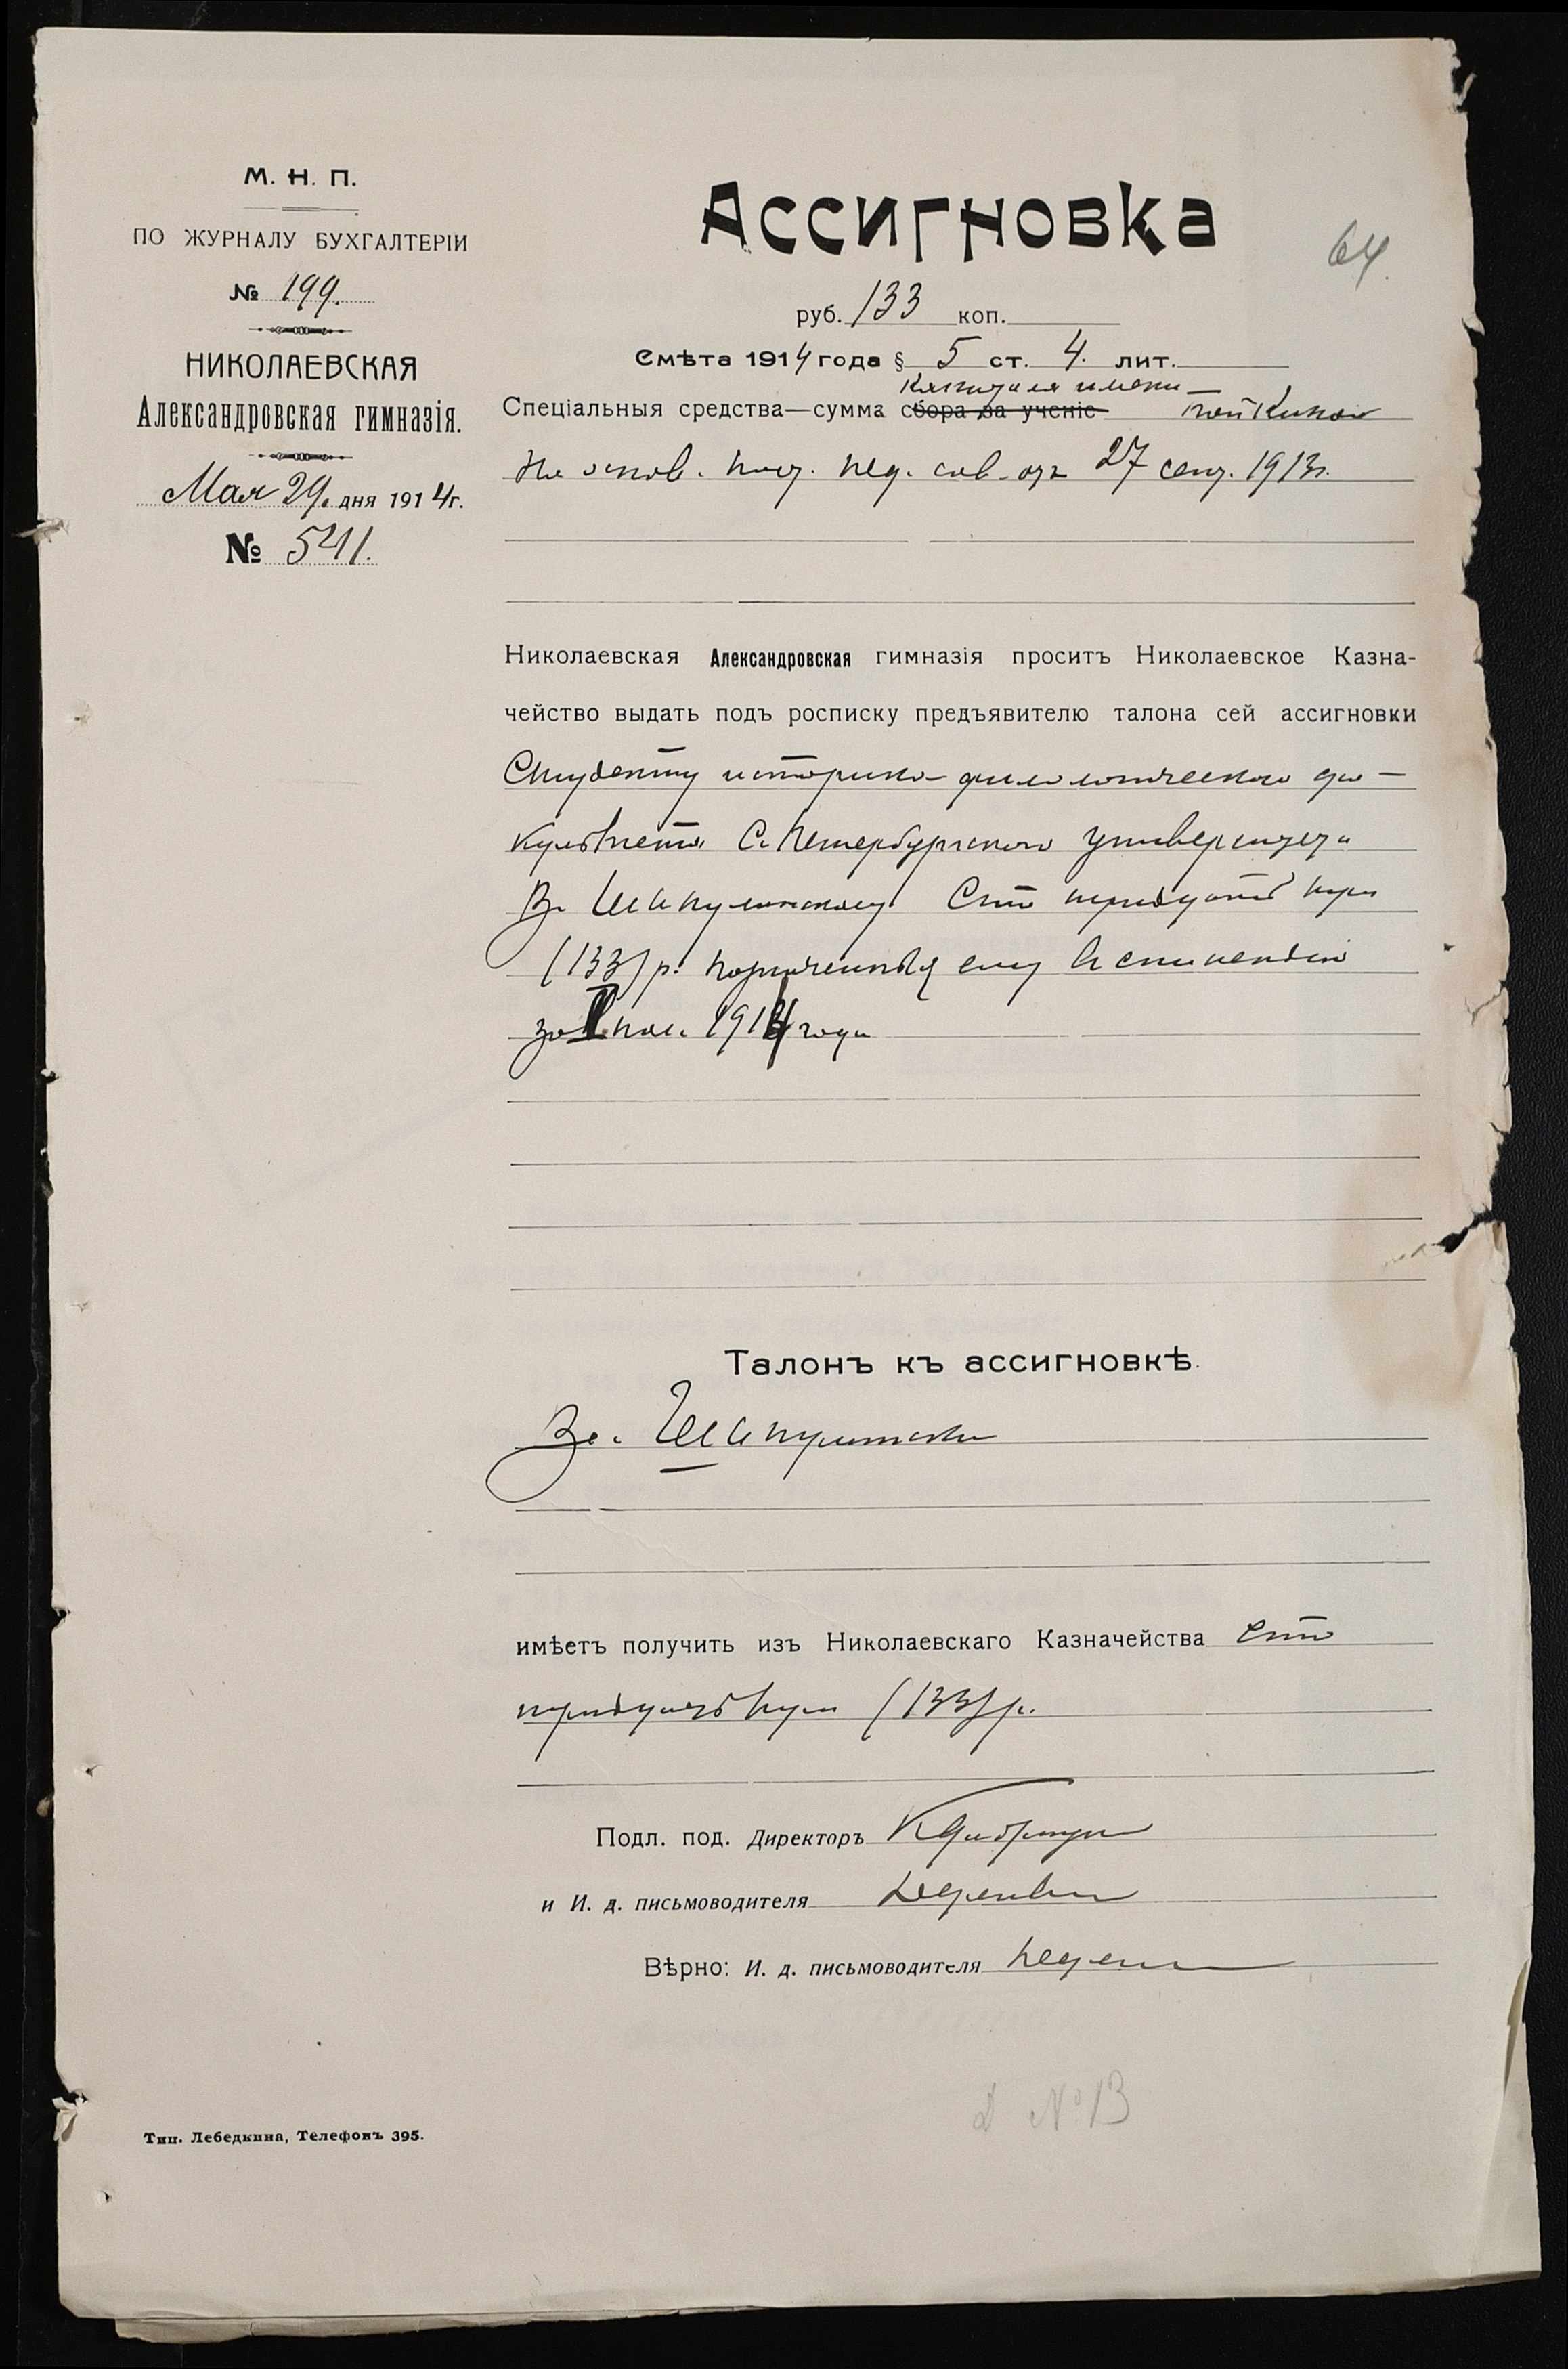 М. Н. П.
ПО ЖУРНАЛУ БУХГАЛТЕРІИ
№ 199.
НИКОЛАЕВСКАЯ
Александровская гимназія.
Мая 29. дня 1914г.
№ 541.
Ассигновка
64.
руб. 133 коп.
Смѣта 1914 года § 5 ст. 4. лит.
капитала имени
Спеціальныя средства—сумма сбора за ученіе
На основ. пост. пед. сов. отъ 27 сент. 1913г.
Николаевская Александровская гимназія проситъ Николаевское Казна-
чейство выдать подъ росписку предъявителю талона сей ассигновки
Студенту историко-филологическаго фа-
культета С. Петербургскаго Университета
Вл. Шапулинскому Сто тридцать три
(133) р. назначенныя ему въ стипендію
за I пол. 1914 года
Талонъ къ ассигновкѣ.
Вл.
имѣетъ получить изъ Николаевскаго Казначейства Сто
тридцать три (133) р.
Подл. под. Директоръ
и И. д. письмоводителя
Вѣрно: И. д. письмоводителя
№ 13
Тип. Лебедкина, Телефонъ 395.